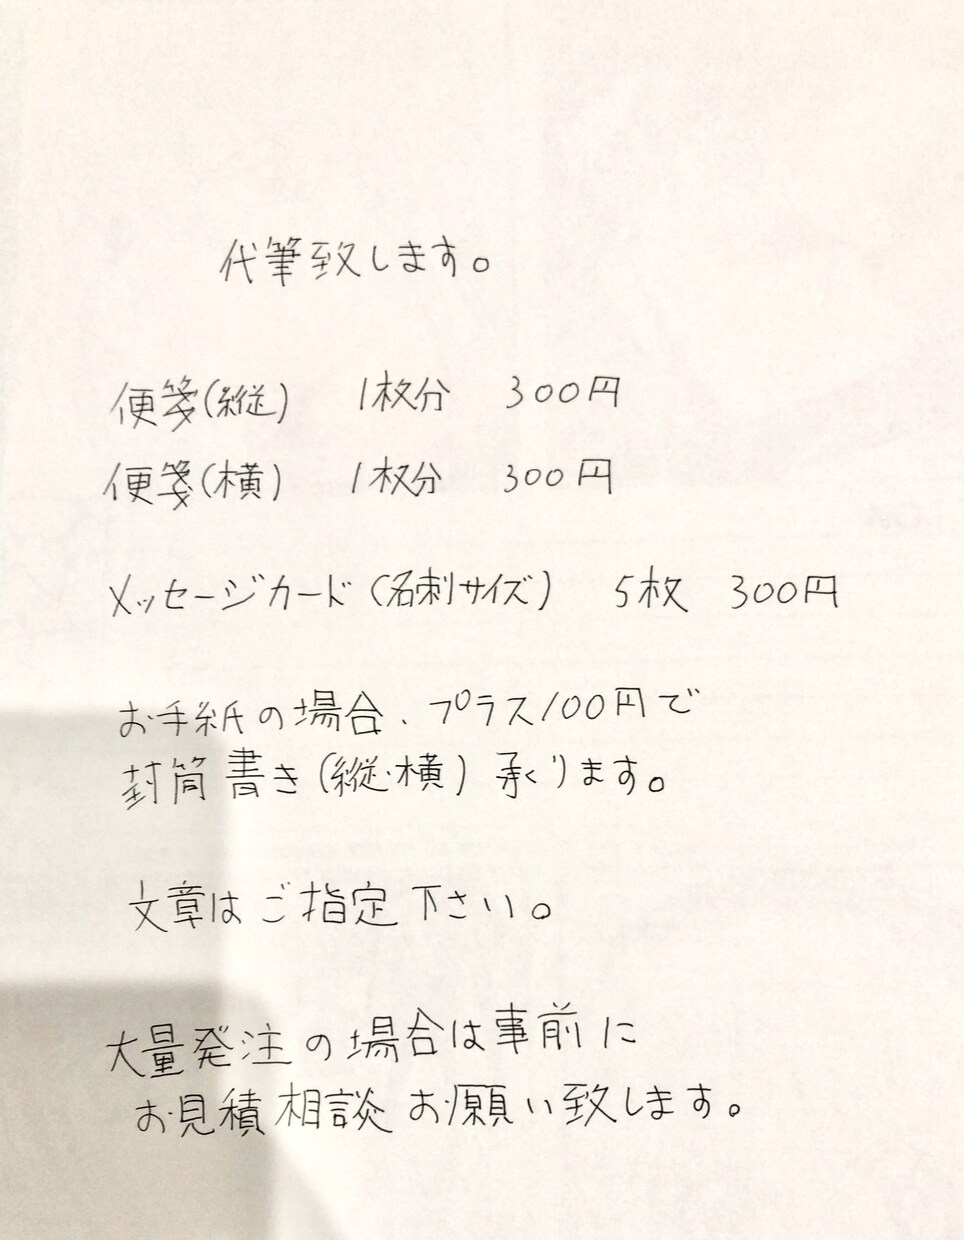 代筆致します。
便箋(縦) 1枚分 300円
便箋(横) 1枚分 300円
メッセージカード(名刺サイズ) 5枚 300円
お手紙の場合、プラス100円で
封筒書き(縦・横)承ります。
文章はご指定下さい。
大量発注の場合は事前に
お見積相談お願い致します。